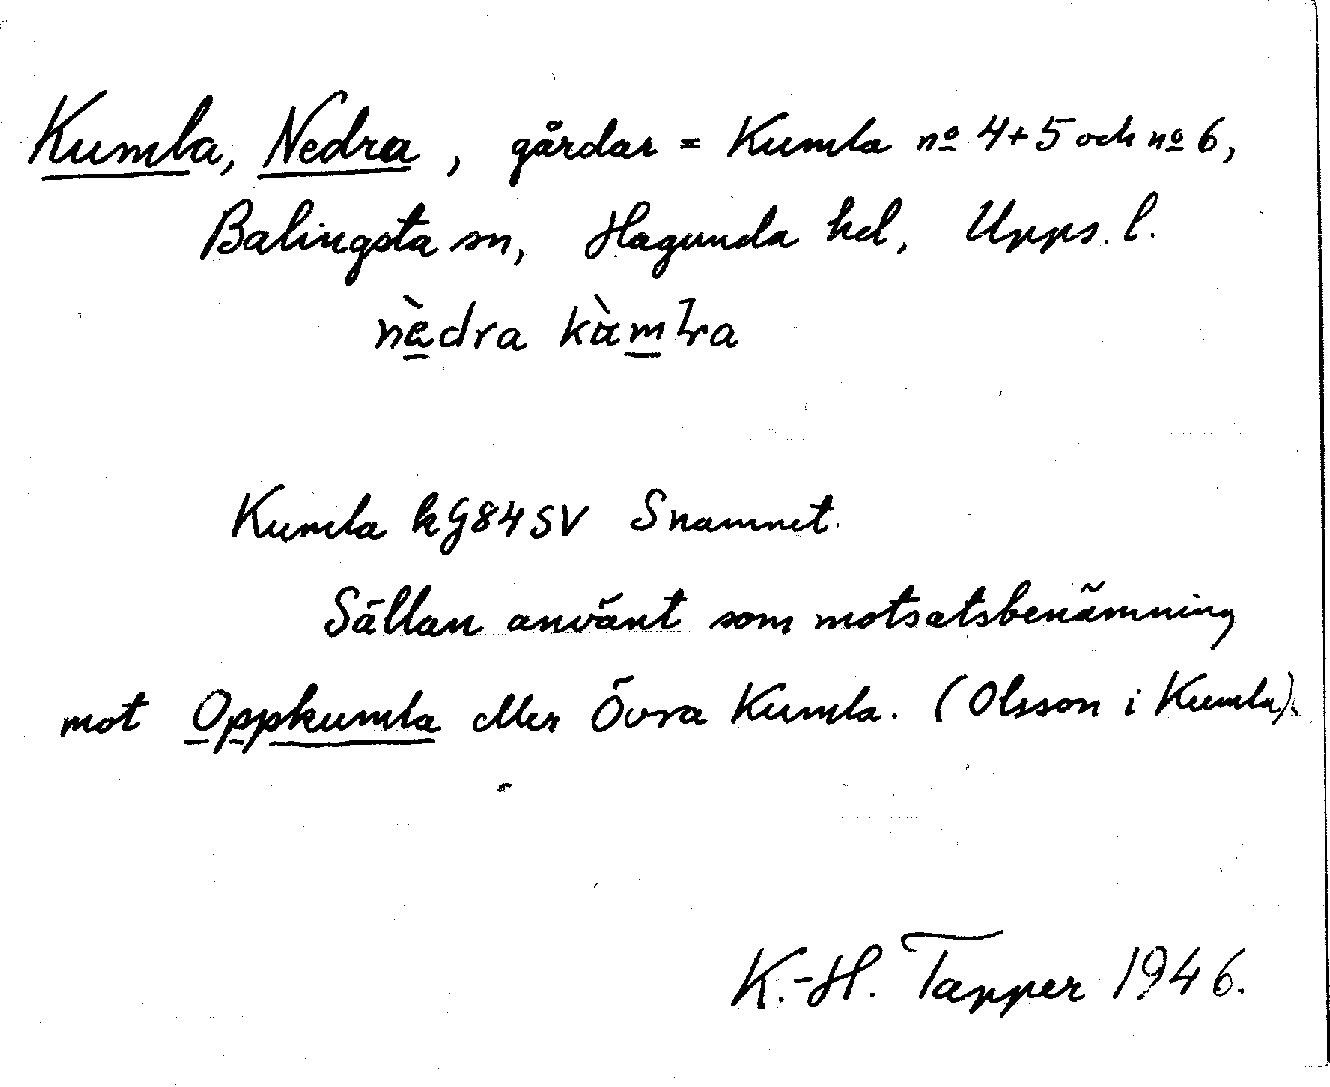 Kumla, Nedra, gårdar = Kumla nº 4+5 och nº 6,
Balingsta sn, Hagunda hd, Upps. l.
nèdra kùmɬra
Kumla kG84SV Snamnet.
Sällan använt som motsatsbenämning
mot Oppkumla eller Övra Kumla. (Olsson i Kumla).
K.-H. Tapper 1946.